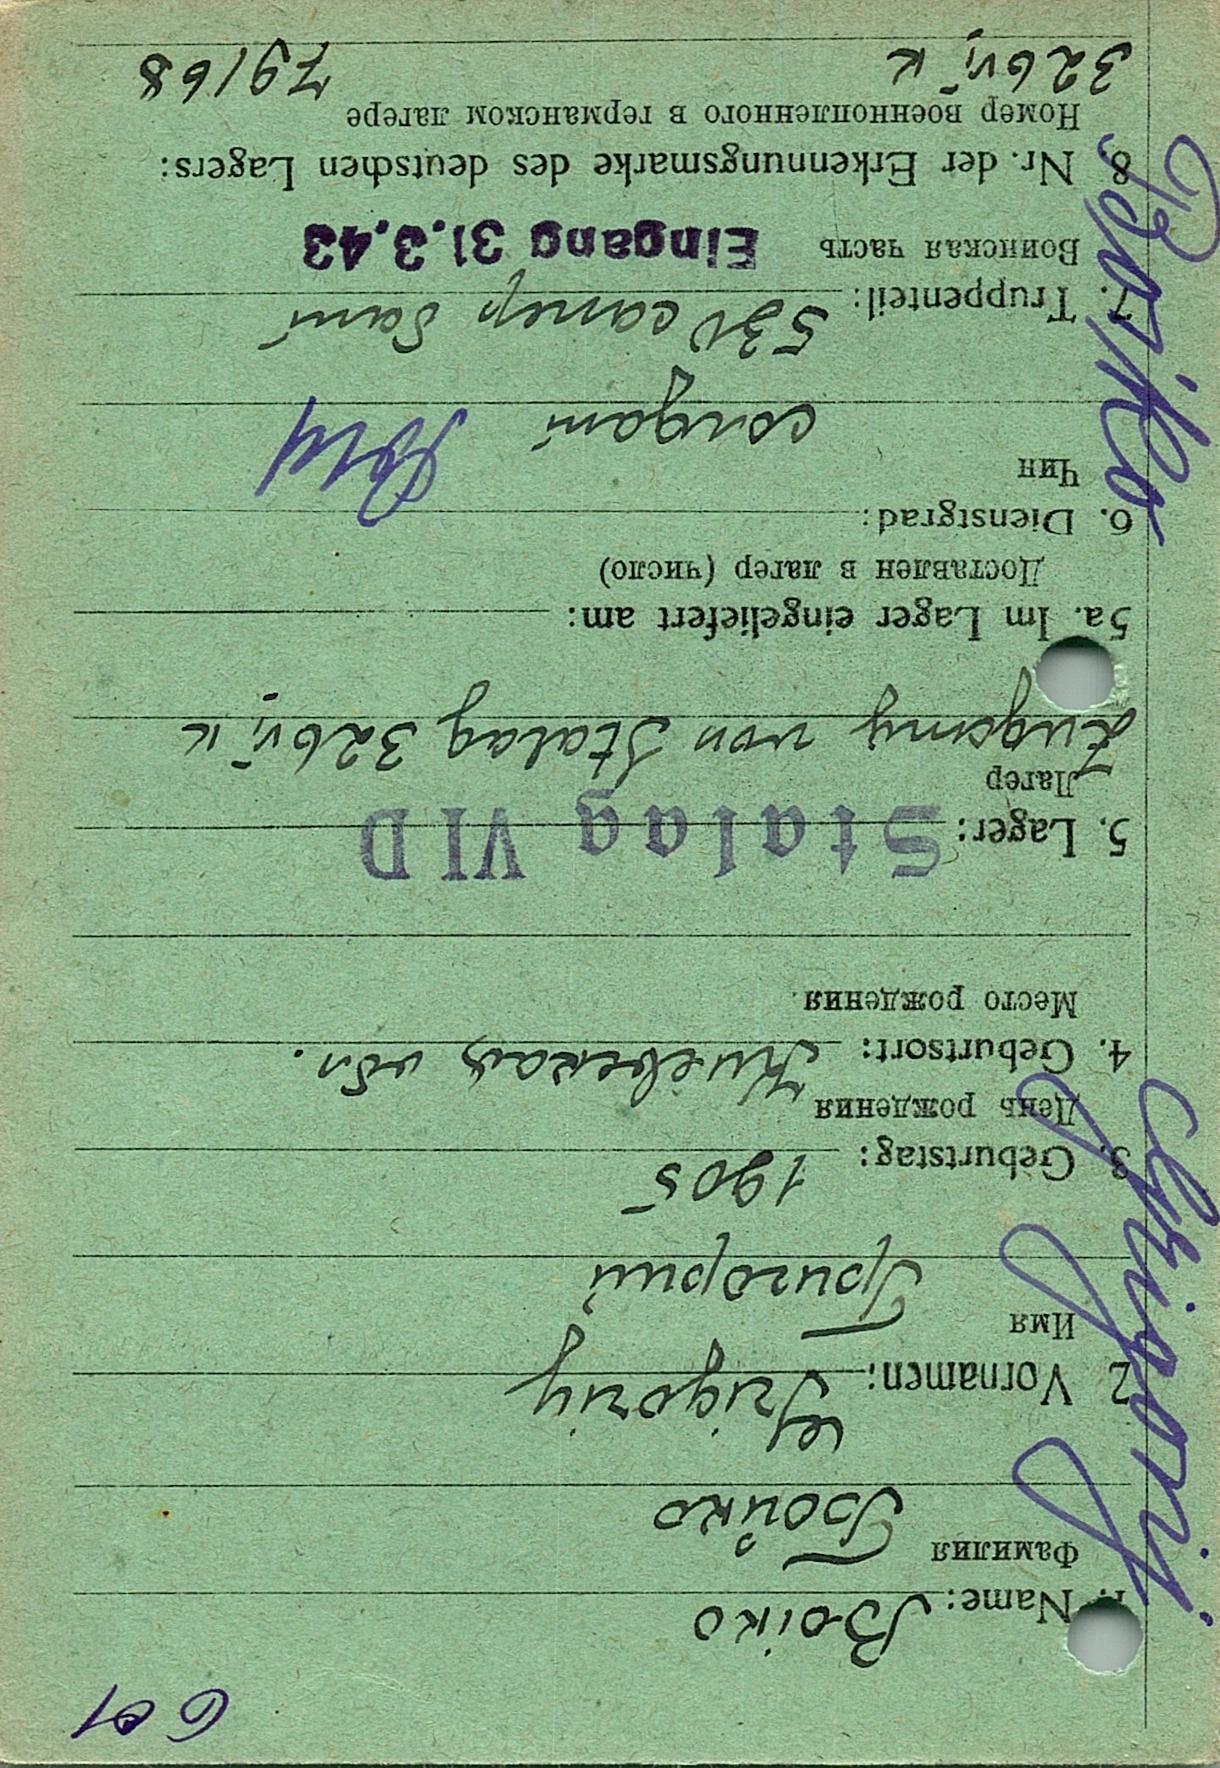 601
1. Name: Boiko
Фамилия Бойко
2 Vornamen: Grigoriy
Имя Григорий
3. Geburtstag: 1905
День рождения
4. Geburtsort: Киевская обл.
Место рождения
5. Lager: Stalag VI D
Лагер
Zugang von Stalag 326 VI K
5a. Im Lager eingeliefert am:
Доставлен в лагер (число)
6. Dienstgrad:
Чин
солдат
7. Truppenteil: 530 сапер бат
Воинская часть Eingang 31.3.43
8. Nr. der Erkennungsmarke des deutschen Lagers:
Номер военнопленного в германском лагере
326 VI K 79168
Bojko, Grigorij